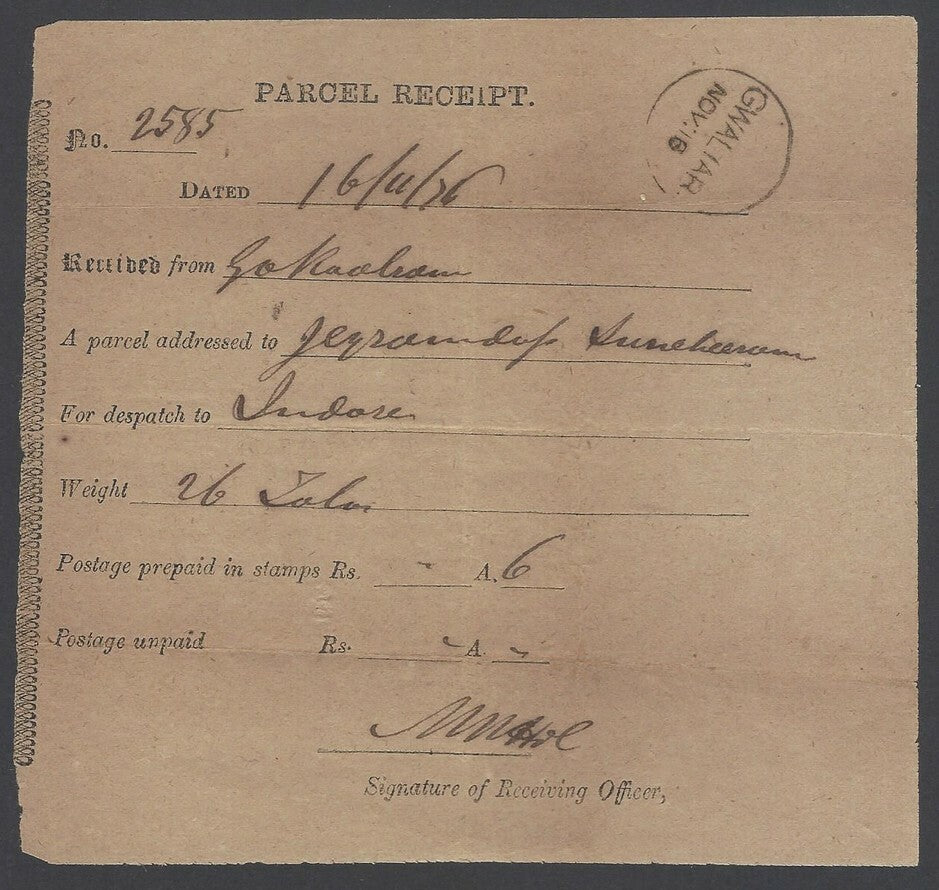 PARCEL RECEIPT.
GWALIAR
NOV:16
No. 2585
DATED 16/11/76
Received from Gokaolram
A parcel addressed to Jeyramdass
For despatch to Indore
Weight 26 Tolas
Postage prepaid in stamps Rs. - A. 6
Postage unpaid Rs. - A. -
Signature of Receiving Officer,